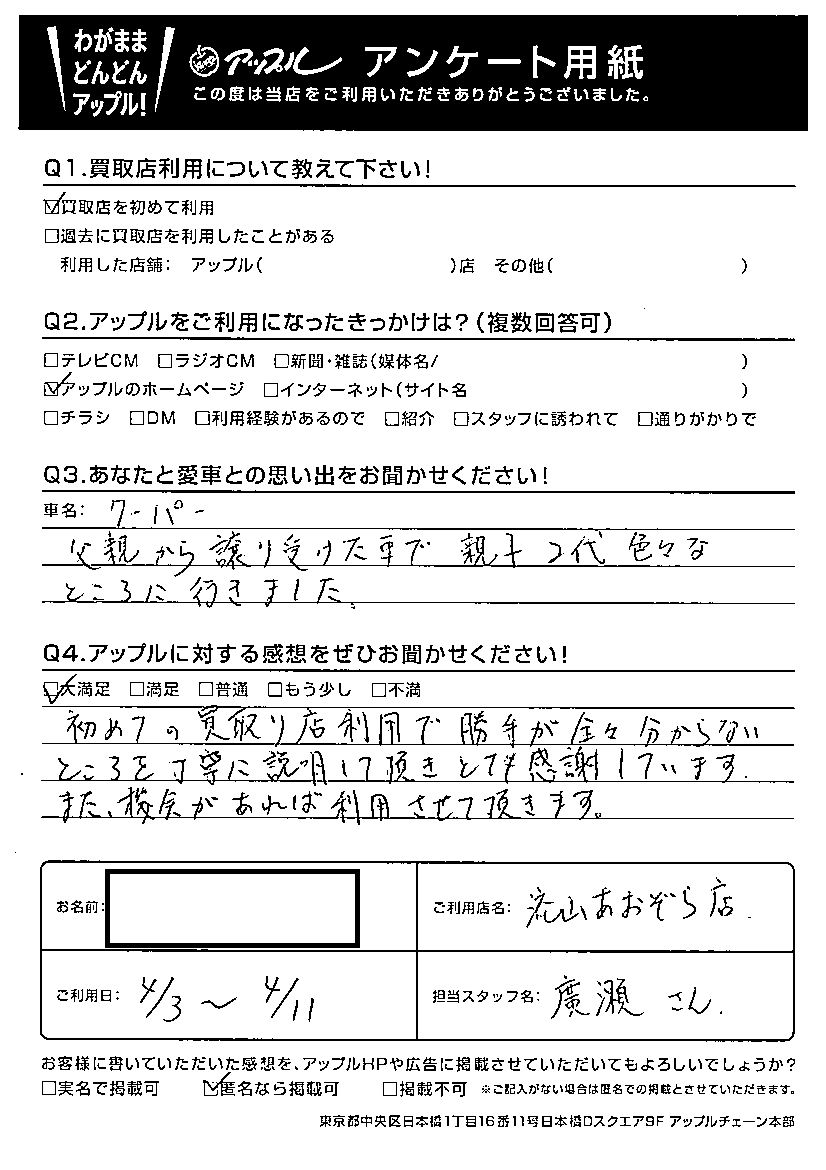 わがまま
どんどん
アップル!
アップル アンケート用紙
この度は当店をご利用いただきありがとうございました。
Q1.買取店利用について教えて下さい!
☑買取店を初めて利用
□過去に買取店を利用したことがある
利用した店舗: アップル( )店 その他( )
Q2.アップルをご利用になったきっかけは?(複数回答可)
□テレビCM □ラジオCM □新聞・雑誌(媒体名/ )
☑アップルのホームページ □インターネット(サイト名 )
□チラシ □DM □利用経験があるので □紹介 □スタッフに誘われて □通りがかりで
Q3.あなたと愛車との思い出をお聞かせください!
車名: クーパー
父親から譲り受けた車で 親子2代 色々な
ところに行きました。
Q4.アップルに対する感想をぜひお聞かせください!
☑大満足 □満足 □普通 □もう少し □不満
初めての買取り店利用で勝手が全々分からない
ところを丁寧に説明して頂きとても感謝しています.
また、機会があれば利用させて頂きます。
お名前:
ご利用店名: 流山あおぞら店.
ご利用日: 4/3 〜 4/11
担当スタッフ名: 廣瀬 さん.
お客様に書いていただいた感想を、アップルHPや広告に掲載させていただいてもよろしいでしょうか?
□実名で掲載可 ☑匿名なら掲載可 □掲載不可 ※ご記入がない場合は匿名での掲載とさせていただきます。
東京都中央区日本橋1丁目16番11号日本橋Dスクエア9F アップルチェーン本部